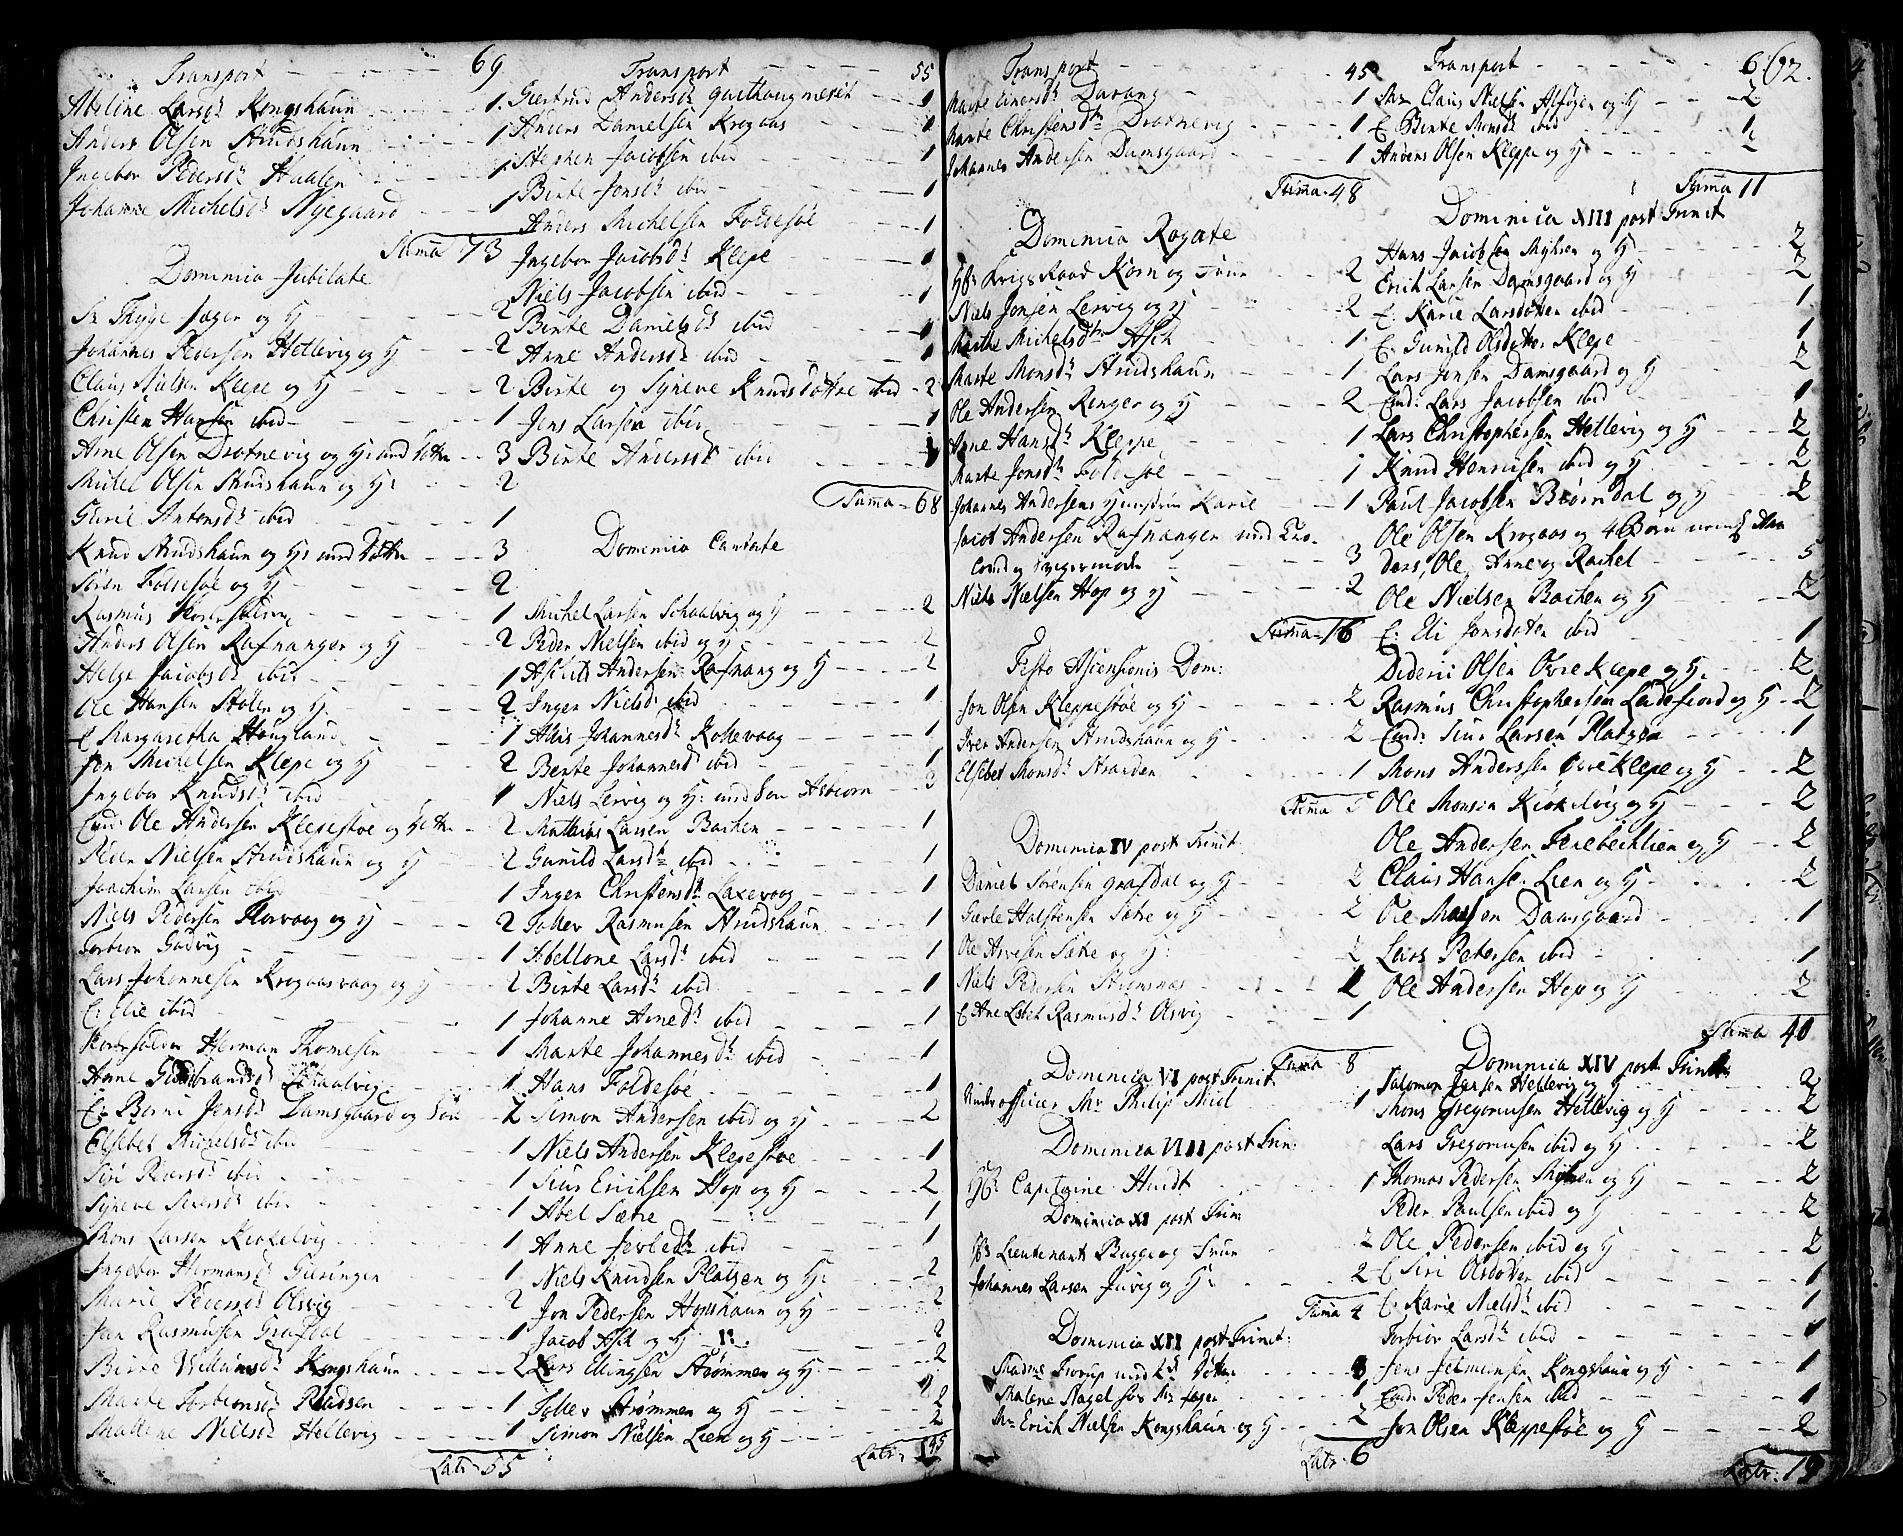 Transport - - - 69
Abeline Larsd: Kongshaun - - 1
Anders Olsen Strudshaun - - 1
Ingebor Pedersd: Haalen - - 1
Johanne Michelsd: Nyegaard - - 1
Suma 73
Dominica Jubilate
Sr Thyge Jæger og H - - 2
Johannes Pedersen Hetlevig og H - - 2
Claus Nielsen Klepe og H - - 2
Christen Hansen ibid - - 1
Arne Olsen Drotnevig og H: med Dotter - - 3
Michel Olsen Strudshaun og H: - - 2
Gurie Antonsd: ibid - - 1
Knud Strudshaun og H: med Dotter - - 3
Sören Foldesöe og H - - 2
Rasmus - - 1
Anders Olsen Rafnanger og H - - 2
Helge Jacobsd: ibid - - 1
Ole Hansen Stölen og H: - - 2
E Margaretha Hougland - - 1
Jon Michelsen Klepe og H - - 2
Ingebor Knudsd: ibid - - 1
Ole Andersen Klepestöe og - - 2
Peder Nielsen Strudshaun og H - - 2
Joachim Larsen ibid - - 1
Niels Pedersen Florvaag og H - - 2
Torbiörn Godvig - - 1
Lars Johannesen Krogaasvaag og H - - 2
E: Elie ibid - - 1
Herman Thomesen - - 1
Anne Gulbrandsd: Schaalvig - - 1
E: Borni Jensd: Damsgaard og Sön - - 2
Elsebet Michelsd: ibid - - 1
Siri Iversd: ibid - - 1
Synneve Iversd: ibid - - 1
Mons Larsen Kirkelvig - - 1
Ingebor Hermansd: - - 1
Marie Pedersd: Olsvig - - 2
Jan Rasmusen Grafdal - - 1
Birte Villumsd: Kongshaun - - 2
Marte Torbiönsd: Knudsen - - 1
Mallene Nielsd: Hellevig - - 1
Latr: 55
Transport - - - 55
Giertrud Andersd: - - 1
Anders Danielsen Krogaas - - 1
Steshen Jacobsen ibid - - 1
Birte Jonsd: ibid - - 1
Anders Michelsen Foldesöe - - 1
Ingebor Jacobsd: Klepe - - 1
Niels Jacobsen ibid - - 1
Birte Danielsd: ibid - - 1
Anne Andersd: ibid - - 1
Birte og Syneve Knudsdötre ibid - 2
Jens Larsen ibid - - 1
Birte Andersd: ibid - - 1
Suma - 68
Dominica Cantate
Michel Larsen Schaalvig og H - - 2
Peder Nielsen ibid og H - - 2
Aslild Andersen Rafnang og H - - 2
Inger Nielsd: ibid - - 1
Ahlis Johannesd: Kollevaag - - 1
Bente Johannesd: ibid - - 1
Niels Lervig og H: med Sön Asbiorn - - 3
Mathias Larsen Backen - - 1
Gunild Larsd: ibid - - 1
Inger Christensd: Laxevaag - - 1
Tollev Rasmusen Strudshaun - - 1
Abellone Larsd: ibid - - 1
Birte Larsd: ibid - - 1
Johanne Arned: ibid - - 1
Marte Johannesd: ibid - - 1
Hans Foldesöe - - 1
Simon Andersen ibid og H - - 2
Niels Andersen Klepestöe - - 1
Siur Erichsen Hop og H - - 2
Abel Sætre - - 1
Anne Jevled: ibid - - 1
Niels Knudsen Platzen og H: - - 2
Jon Pedersen Honshaun og H - - 2
Jacob Ask og H - - 2
Lars Ellingsen Strömmen og H - - 2
Tollev Strömmen og H - - 2
Simon Nielsen Lien og H - - 2
Latr: 45
Transport - - 45
Marte Einersd: Davang - - 1
Marte Christensd: Drotnevig - - 1
Johannes Andersen Damsgaard - - 1
Suma - 48
Dominica Rogate
Hr: Krigs Raad Korn og Frue - - 2
Niels Jonsen Lervig og H - - 2
Marthe Michelsdtr Asch - - 1
Marte Monsd: Strudshaun - - 1
Ole Andersen Ringer og H - - 2
Arne Hansd: Kleppe - - 1
Marte Jonsd: Foldesöe - - 1
Johannes Andersens Huustru Karie - - 1
Jacob Andersen Rafnanger med Tro-
lovede og Svigermoder - - 3
Niels Nielsen Hop og H - - 2
Suma - 16
Festo Ascensionis Dom:
Jon Olsen Kleppestöe og H - - 2
Iver Andersen Strudshaun og H - - 2
Elsebet Monsd: Stranden - - 1
Suma 5
Dominica IV post Trinit:
Daniel Sörensen Grafdal og H - - 2
Gietle Halstensen Sætre og H - - 2
Ole Arvesen Sætre og H: - - 2
Niels Pedersen Strömsnes - - 1
E Ane Lsbet Rasmusd: Olsvig - - 1
Suma 8
Dominica VI post Trinit:
Under officeer Mr Philip Miel - - 1
Dominica VIII post Trin:
Hr: Capitaine Hundt - - 1
Dominica XI post Trin:
Hr: Lieutenant Bugge og Frue - - 2
Johannes Larsen Juvig og H: - - 2
Suma 4
Dominica XII post Trinit:
Madme Frorup med Dötter - - 3
Malene Nagel hos Mr Jæger - - 1
Mr Erich Nielsen Kongshaun og H - - 2
Latr: 6
62.
Transport - - - 6
Mr Claus Nielsen Alföyen og H - - 2
E Birte Monsd: ibid - - 1
Anders Olsen Kleppe og H - - 2
Suma 11
Dominica XIII post Trinit
Hans Jacobsen Myhren og H - - 2
Erich Larsen Damsgaard og H - - 2
E. Karie Larsdotter ibid - - 1
E. Gunild Olsdotter Klepe - - 1
Lars Jensen Damsgaard og H - - 2
Lars Jacobsen ibid - - 1
Lars Christophersen Hetlevig og H - - 2
Knud Henricsen ibid og H - - 2
Paul Jacobsen Biörndal og H - - 2
Ole Olsen Krogaas og 4 Börn Än
ders, Ole, Anne og Rachel - - 5
Ole Nielsen Backen og H - - 2
E: Eli Jonsdotter ibid - - 1
Dideric Olsen Övre Klepe og H. - - 2
Rasmus Christophersen Ladefiord og H - 2
Siur Larsen Platzen - - 1
Mons Anderssen Övre Klepe og H - - 2
Ole Monsen Kirkelvig og H - - 2
Ole Andersen Ferebechlien og H - - 2
Claus Hansen Lien og H - - 2
Ole Madsen Damsgaard - - 1
Lars Petersen ibid - - 1
Ole Andersen Hop og H - - 2
Suma 40
Dominica XIV post Trinit:
Salomon Jansen Hetlevig og H - - 2
Mons Gregoriusen Hetlevig og H - - 2
Lars Gregoriusen ibid og H - - 2
Thomas Pedersen Myhren og H - - 2
Peder Paulsen ibid og H - - 2
Ole Pedersen ibid og H - - 2
E Siri Olsdotter ibid - - 1
E. Karie Nielsd: ibid - - 1
Torbiör Larsd: ibid - - 1
Jens Salmunsen Kongshaun og H - - 1
Peder Jensen ibid - - 1
Jon Olsen Kleppestöe og H - - 2
Latr: 19